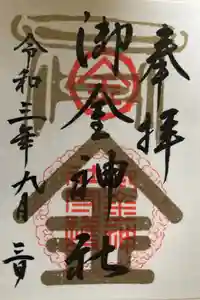 奉拝
御金神社
令和三年九月二日